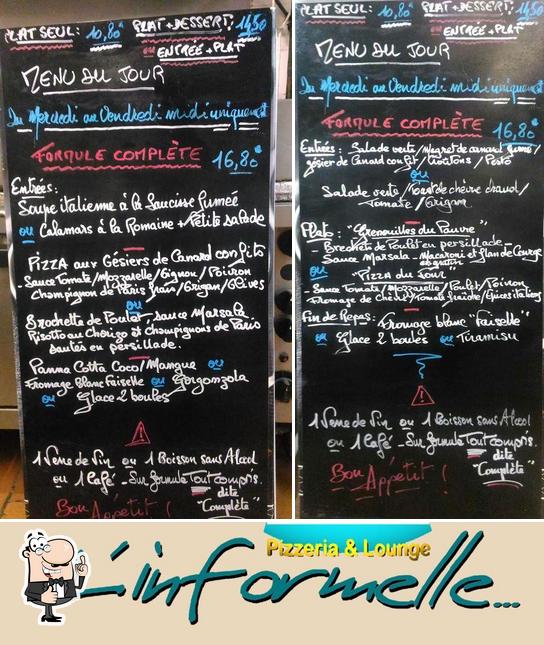 PLAT SEUL: 10,80€ PLAT + DESSERT, 14,50
ou ENTRÉE + PLAT
MENU DU JOUR
Du Mercredi au Vendredi midi uniquement
FORMULE COMPLÈTE 16,80€
Entrées:
Soupe italienne à la Saucisse fumée
ou Calamars à la Romaine + Petite salade
PIZZA aux Gésiers de Canard confits
- Sauce Tomate/Mozzarelle/Oignon/Poivron
Champignon de Paris frais/Origan/Olives
ou
Brochette de Poulet - sauce Marsala
Risotto au Chorizo et champignons de Paris
sautés en persillade.
Panna Cotta Coco/Mangue ou
Fromage Blanc Faiselle ou Gorgonzola
ou Glace 2 boules
1 Verre de Vin ou 1 Boisson sans Alcool
ou 1 Café - Sur formule Tout compris.
dite
"Complète"
Bon Appétit !
PLAT SEUL: 10,80€ PLAT + DESSERT, 14,50
ou ENTRÉE + PLAT
MENU DU JOUR
Du Mercredi au Vendredi midi uniquement
FORMULE COMPLÈTE 16,80€
Entrées: Salade verte/Magret de canard fumé/
Gésier de Canard confit/Croûtons/Pesto
ou
Salade verte/Toast de chèvre chaud/
Tomate/Origan.
Plats: "Grenouilles du Pauvre"
Brochette de Poulet en persillade -
Sauce Marsala - Macaroni et flan de Courge
au gratin
ou "Pizza du Jour"
- Sauce Tomate/Mozzarelle/Poulet/Poivron
Fromage de Chèvre/Tomate fraîche/Epices italiens
Fin de Repas: Fromage blanc "Faiselle"
ou Glace 2 boules ou Tiramisu
1 Verre de Vin ou 1 Boisson sans Alcool
ou 1 Café - Sur formule Tout compris.
dite
"Complète"
Bon Appétit !
Pizzeria & Lounge
L'informelle...